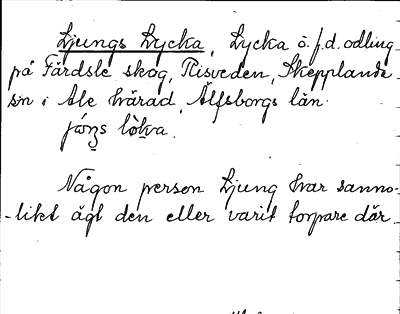 Ljungs Lycka, Lycka ö. f.d. odling
på Färdsle skog, Risveden, Skepplanda
sn i Ale härad, Älfsborgs län.
Någon person Ljung har sanno-
-likt ägt den eller varit torpare där.